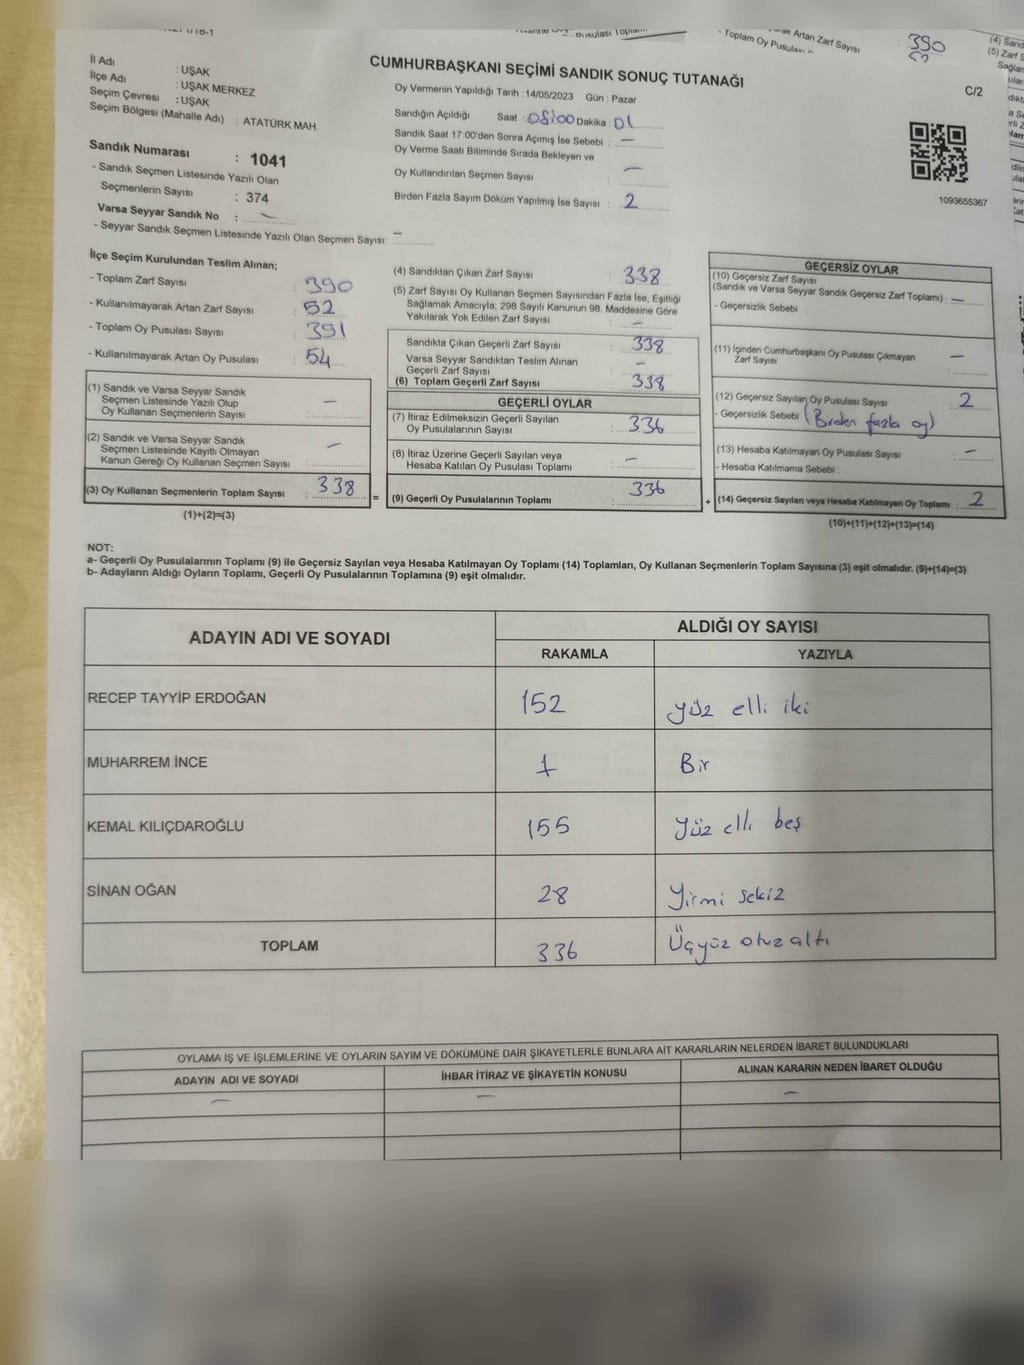 Toplam Oy Pusulas
Artan Zarf Sayısı
390
52
(4) Sand
(5) Zarf S
Sağlan
CUMHURBAŞKANI SEÇİMİ SANDIK SONUÇ TUTANAĞI
C/2
İl Adı : UŞAK
İlçe Adı : UŞAK MERKEZ
Seçim Çevresi : UŞAK
Seçim Bölgesi (Mahalle Adı) : ATATÜRK MAH.
Oy Vermenin Yapıldığı Tarih : 14/05/2023 Gün : Pazar
Sandığın Açıldığı Saat : 08:00 Dakika : 01
Sandık Saat 17:00'den Sonra Açımış İse Sebebi : —
Oy Verme Saati Bitiminde Sırada Bekleyen ve
Oy Kullandırılan Seçmen Sayısı : —
Birden Fazla Sayım Döküm Yapılmış İse Sayısı : 2
1093655367
Sandık Numarası : 1041
- Sandık Seçmen Listesinde Yazılı Olan
Seçmenlerin Sayısı : 374
Varsa Seyyar Sandık No : —
- Seyyar Sandık Seçmen Listesinde Yazılı Olan Seçmen Sayısı: —
İlçe Seçim Kurulundan Teslim Alınan;
- Toplam Zarf Sayısı : 390
- Kullanılmayarak Artan Zarf Sayısı : 52
- Toplam Oy Pusulası Sayısı : 391
- Kullanılmayarak Artan Oy Pusulası : 54
(1) Sandık ve Varsa Seyyar Sandık
Seçmen Listesinde Yazılı Olup
Oy Kullanan Seçmenlerin Sayısı : —
(2) Sandık ve Varsa Seyyar Sandık
Seçmen Listesinde Kayıtlı Olmayan
Kanun Gereği Oy Kullanan Seçmen Sayısı : —
(3) Oy Kullanan Seçmenlerin Toplam Sayısı : 338
(1)+(2)=(3)
(4) Sandıktan Çıkan Zarf Sayısı : 338
(5) Zarf Sayısı Oy Kullanan Seçmen Sayısından Fazla İse, Eşitliği
Sağlamak Amacıyla, 298 Sayılı Kanunun 98. Maddesine Göre
Yakılarak Yok Edilen Zarf Sayısı : —
Sandıkta Çıkan Geçerli Zarf Sayısı : 338
Varsa Seyyar Sandıktan Teslim Alınan
Geçerli Zarf Sayısı : —
(6) Toplam Geçerli Zarf Sayısı : 338
GEÇERLİ OYLAR
(7) İtiraz Edilmeksizin Geçerli Sayılan
Oy Pusulalarının Sayısı : 336
(8) İtiraz Üzerine Geçerli Sayılan veya
Hesaba Katılan Oy Pusulası Toplamı : —
= (9) Geçerli Oy Pusulalarının Toplamı : 336
GEÇERSİZ OYLAR
(10) Geçersiz Zarf Sayısı
(Sandık ve Varsa Seyyar Sandık Geçersiz Zarf Toplamı) : —
- Geçersizlik Sebebi :
(11) İçinden Cumhurbaşkanı Oy Pusulası Çıkmayan
Zarf Sayısı : —
(12) Geçersiz Sayılan Oy Pusulası Sayısı : 2
- Geçersizlik Sebebi (Birden fazla oy)
(13) Hesaba Katılmayan Oy Pusulası Sayısı : —
- Hesaba Katılmama Sebebi :
+ (14) Geçersiz Sayılan veya Hesaba Katılmayan Oy Toplamı : 2
(10)+(11)+(12)+(13)=(14)
NOT:
a- Geçerli Oy Pusulalarının Toplamı (9) ile Geçersiz Sayılan veya Hesaba Katılmayan Oy Toplamı (14) Toplamları, Oy Kullanan Seçmenlerin Toplam Sayısına (3) eşit olmalıdır. (9)+(14)=(3)
b- Adayların Aldığı Oyların Toplamı, Geçerli Oy Pusulalarının Toplamına (9) eşit olmalıdır.
ADAYIN ADI VE SOYADI
ALDIĞI OY SAYISI
RAKAMLA YAZIYLA
RECEP TAYYİP ERDOĞAN 152 yüz elli iki
MUHARREM İNCE 1 Bir
KEMAL KILIÇDAROĞLU 155 Yüz elli beş
SİNAN OĞAN 28 Yirmi sekiz
TOPLAM 336 Üçyüz otuz altı
OYLAMA İŞ VE İŞLEMLERİNE VE OYLARIN SAYIM VE DÖKÜMÜNE DAİR ŞİKAYETLERLE BUNLARA AİT KARARLARIN NELERDEN İBARET BULUNDUKLARI
ADAYIN ADI VE SOYADI İHBAR İTİRAZ VE ŞİKAYETİN KONUSU ALINAN KARARIN NEDEN İBARET OLDUĞU
— — —